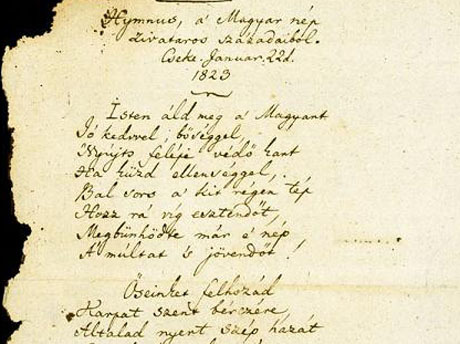 Hymnus, a' Magyar nép
zivataros századaiból.
Cseke Januar. 22d.
1823
Isten áld meg a' Magyart
Jó kedvvel, bőséggel,
Nyújts feléje védő kart
Ha küzd ellenséggel,
Bal sors a' kit régen tép
Hozz rá víg esztendőt,
Megbünhödte már e' nép
A' múltat 's jövendőt!
Őseinket felhozád
Karpat szent bérczére,
Általad nyert szép hazát